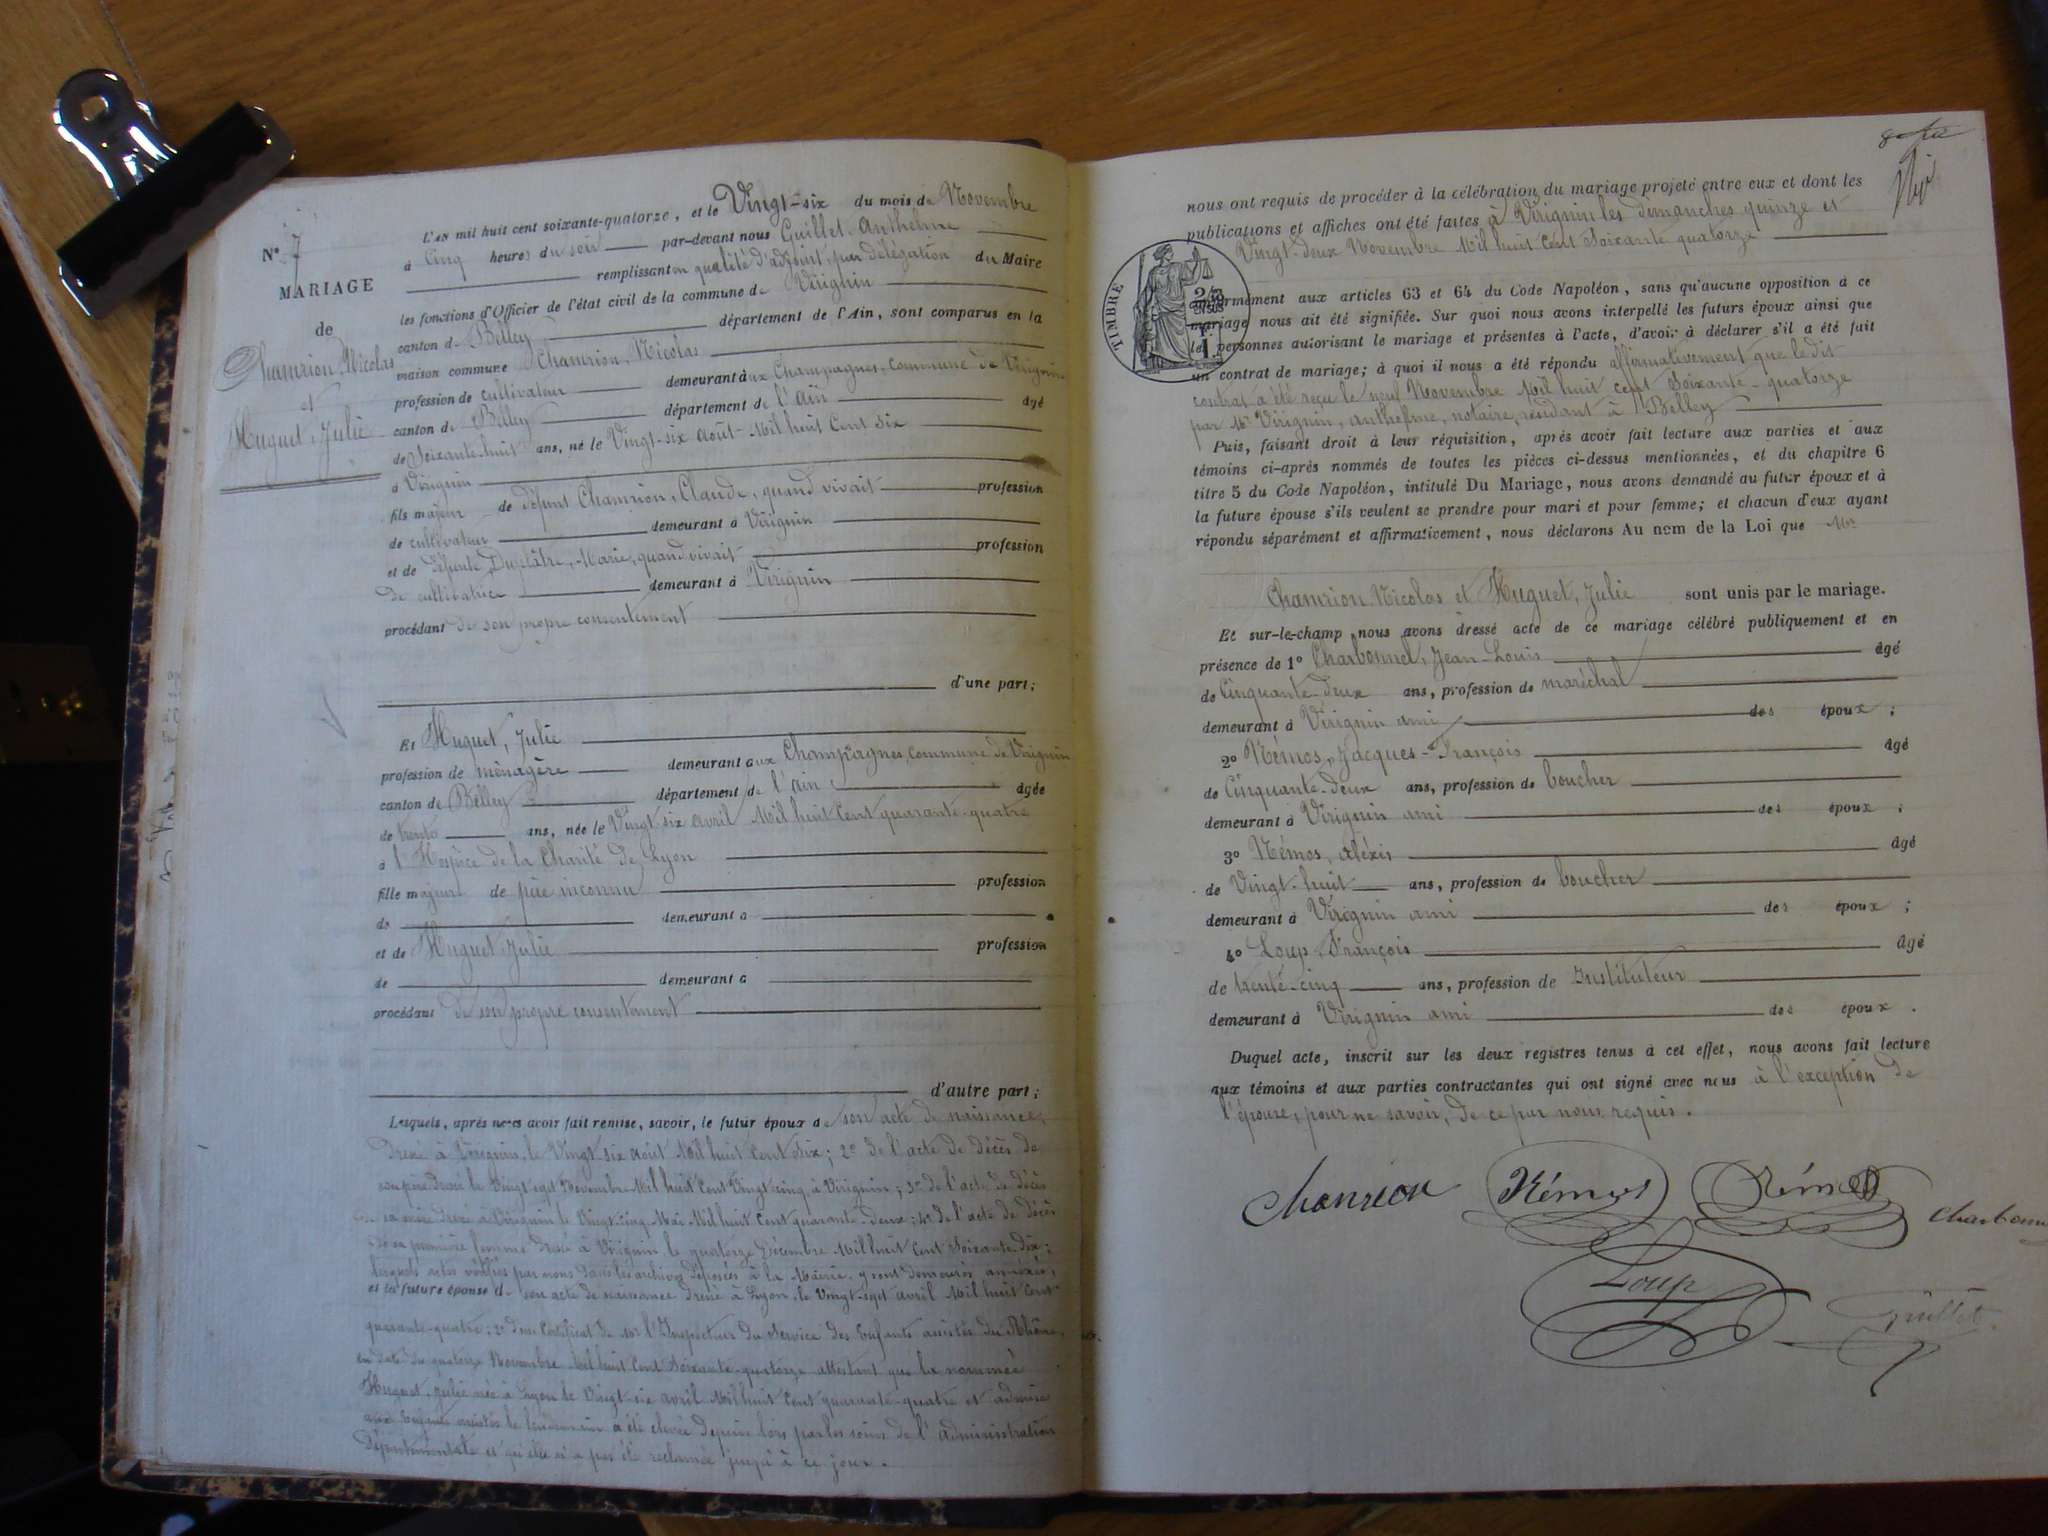 N° 7
MARIAGE
de
Chamrion, Nicolas
et
Huguet, Julie
L'an mil huit cent soixante-quatorze, et le Vingt-six du mois de Novembre
à Cinq heures du soir par-devant nous Guillet Anthelme
remplissant en qualité d'adjoint, par délégation du Maire
les fonctions d'Officier de l'état civil de la commune de Virignin
canton de Belley département de l'Ain, sont comparus en la
maison commune Chamrion, Nicolas
profession de cultivateur demeurant aux Champagnes, Commune de Virignin
canton de Belley département de l'Ain âgé
de Soixante-huit ans, né le Vingt-six Août Mil huit Cent six
à Virignin
fils majeur de défunt Chamrion, Claude, quand vivait profession
de cultivateur demeurant à Virignin
et de défunte Duplâtre, Marie, quand vivait profession
de cultivatrice demeurant à Virignin
procédant de son propre consentement
d'une part;
Et Huguet, Julie
profession de ménagère demeurant aux Champagnes, Commune de Virignin
canton de Belley département de l'Ain âgée
de trente ans, née le Vingt-six avril Mil huit Cent quarante-quatre
à l'Hospice de la Charité de Lyon
fille majeure de père inconnu profession
de demeurant à
et de Huguet Julie profession
de demeurant à
procédant de son propre consentement
d'autre part;
Lesquels, après nous avoir fait remise, savoir, le futur époux de son acte de naissance,
dressé à Virignin, le Vingt-six août Mil huit Cent six; 2° de l'acte de décès de
son père dressé le Vingt-sept Novembre Mil huit Cent Vingt-cinq à Virignin; 3° de l'acte de décès
de sa mère dressé à Virignin le Vingt-cinq Mai Mil huit Cent quarante-deux; 4° de l'acte de décès
de sa première femme dressé à Virignin le quatorze Décembre Mil huit Cent Soixante-dix;
lesquels actes vérifiés par nous dans les archives déposées à la Mairie, y sont demeurés annexés;
et la future épouse de son acte de naissance dressé à Lyon, le Vingt-sept avril Mil huit Cent
quarante-quatre; 2° d'un Certificat de Mr l'Inspecteur du Service des Enfants assistés du Rhône,
en date du quatorze Novembre Mil huit Cent Soixante-quatorze attestant que la nommée
Huguet, Julie née à Lyon le Vingt-six avril Mil huit Cent quarante-quatre et admise
aux Enfants assistés le a été élevée depuis lors par les soins de l'administration
Départementale et qu'elle n'a pas été réclamée jusqu'à ce jour.
nous ont requis de procéder à la célébration du mariage projeté entre eux et dont les
publications et affiches ont été faites à Virignin les dimanches quinze et
Vingt-deux Novembre Mil huit Cent Soixante-quatorze
TIMBRE
conformément aux articles 63 et 64 du Code Napoléon, sans qu'aucune opposition à ce
mariage nous ait été signifiée. Sur quoi nous avons interpellé les futurs époux ainsi que
les personnes autorisant le mariage et présentes à l'acte, d'avoir à déclarer s'il a été fait
un contrat de mariage; à quoi il nous a été répondu affirmativement que le dit
contrat a été reçu le neuf Novembre Mil huit cent Soixante-quatorze
par Me Virignin, anthelme, notaire, résidant à Belley
Puis, faisant droit à leur réquisition, après avoir fait lecture aux parties et aux
témoins ci-après nommés de toutes les pièces ci-dessus mentionnées, et du chapitre 6
titre 5 du Code Napoléon, intitulé Du Mariage, nous avons demandé au futur époux et à
la future épouse s'ils veulent se prendre pour mari et pour femme; et chacun d'eux ayant
répondu séparément et affirmativement, nous déclarons Au nom de la Loi que Mr
Chamrion Nicolas et Huguet, Julie sont unis par le mariage.
Et sur-le-champ nous avons dressé acte de ce mariage célébré publiquement et en
présence de 1° Charbonnel, Jean-Louis âgé
de Cinquante-deux ans, profession de maréchal
demeurant à Virignin ami des époux;
2° Rémos, Jacques-François âgé
de Cinquante-deux ans, profession de boucher
demeurant à Virignin ami des époux;
3° Rémos, aléxis âgé
de Vingt-huit ans, profession de boucher
demeurant à Virignin ami des époux;
4° Loup, François âgé
de trente-cinq ans, profession de Instituteur
demeurant à Virignin ami des époux.
Duquel acte, inscrit sur les deux registres tenus à cet effet, nous avons fait lecture
aux témoins et aux parties contractantes qui ont signé avec nous à l'exception de
l'épouse, pour ne savoir, de ce par nous requis.
Chamrion Rémos Rémos Charbonn
Loup
Guillet